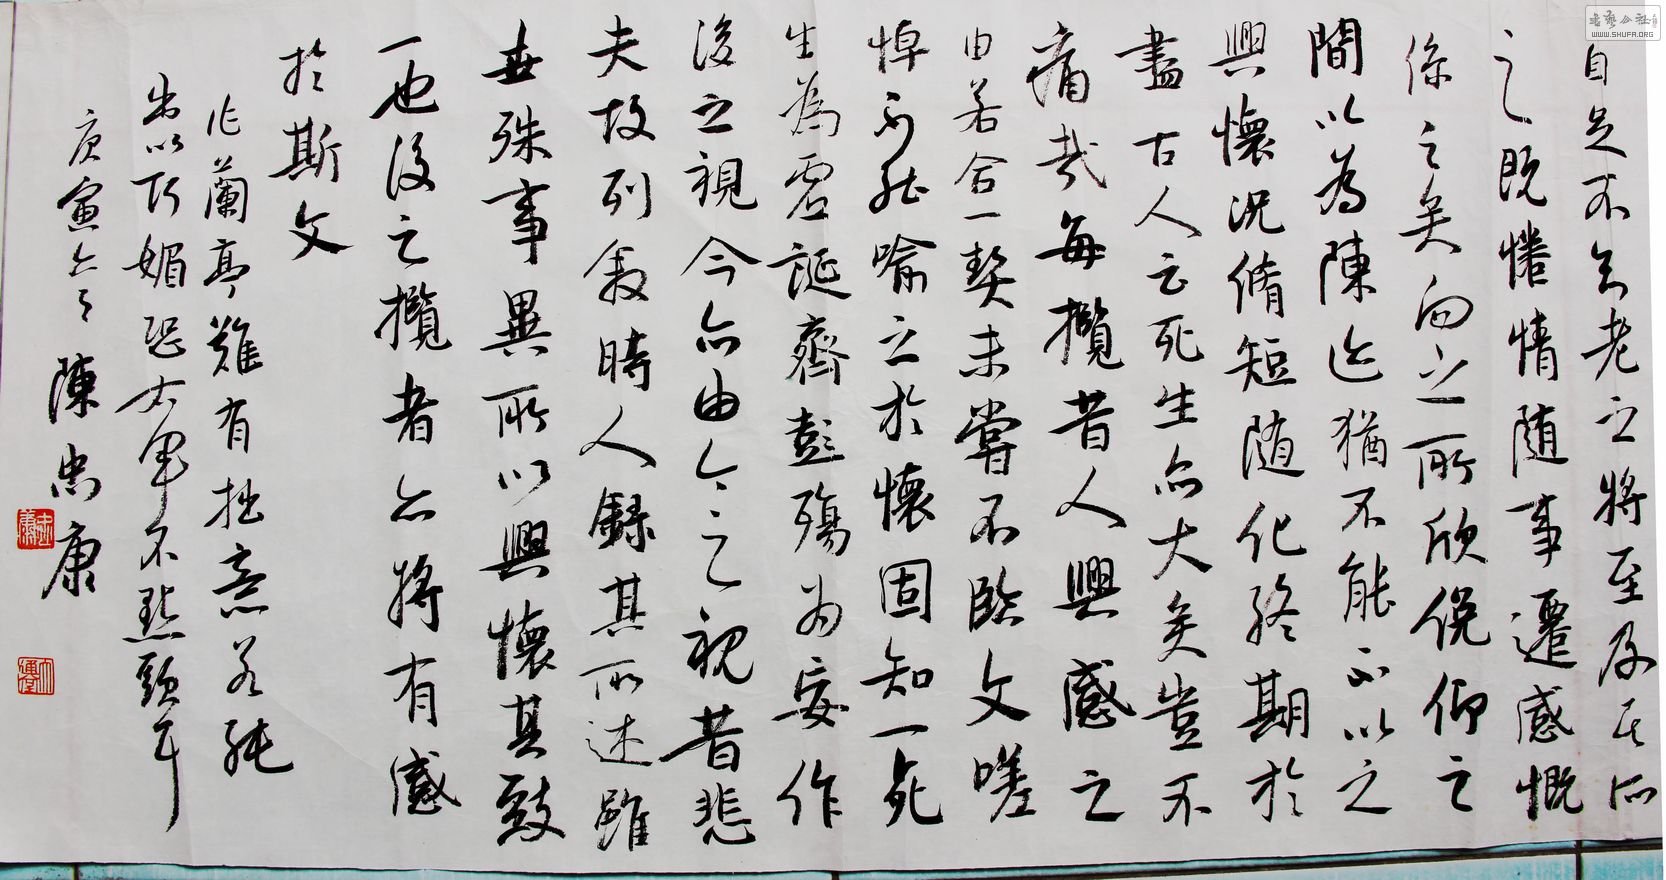 自足不知老之將至及其所
之既惓情随事遷感慨
係之矣向之所欣俛仰之
間以為陳迹猶不能不以之
興懷況脩短随化終期於
盡古人云死生亦大矣豈不
痛哉每攬昔人興感之
由若合一契未嘗不臨文嗟
悼不能喻之於懷固知一死
生為虛誕齊彭殤為妄作
後之視今亦由今之視昔悲
夫故列敘時人錄其所述雖
世殊事異所以興懷其致
一也後之攬者亦將有感
於斯文
作蘭亭難有拙意若純
出以巧媚恐右軍不點頭耳
庚寅 陳忠康
忠康
書藝公社
WWW.SHUFA.ORG